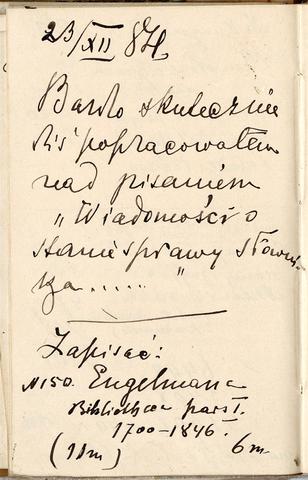 23/XII 84
Bardo skutecznie
dziś popracowałem
nad pisaniem
„Wiadomości o
stanie sprawy słowni-
ka ......"
Zapisać:
N150. Engelmann
Bibliotheca pars I.
1700-1846.
(11m) 6m